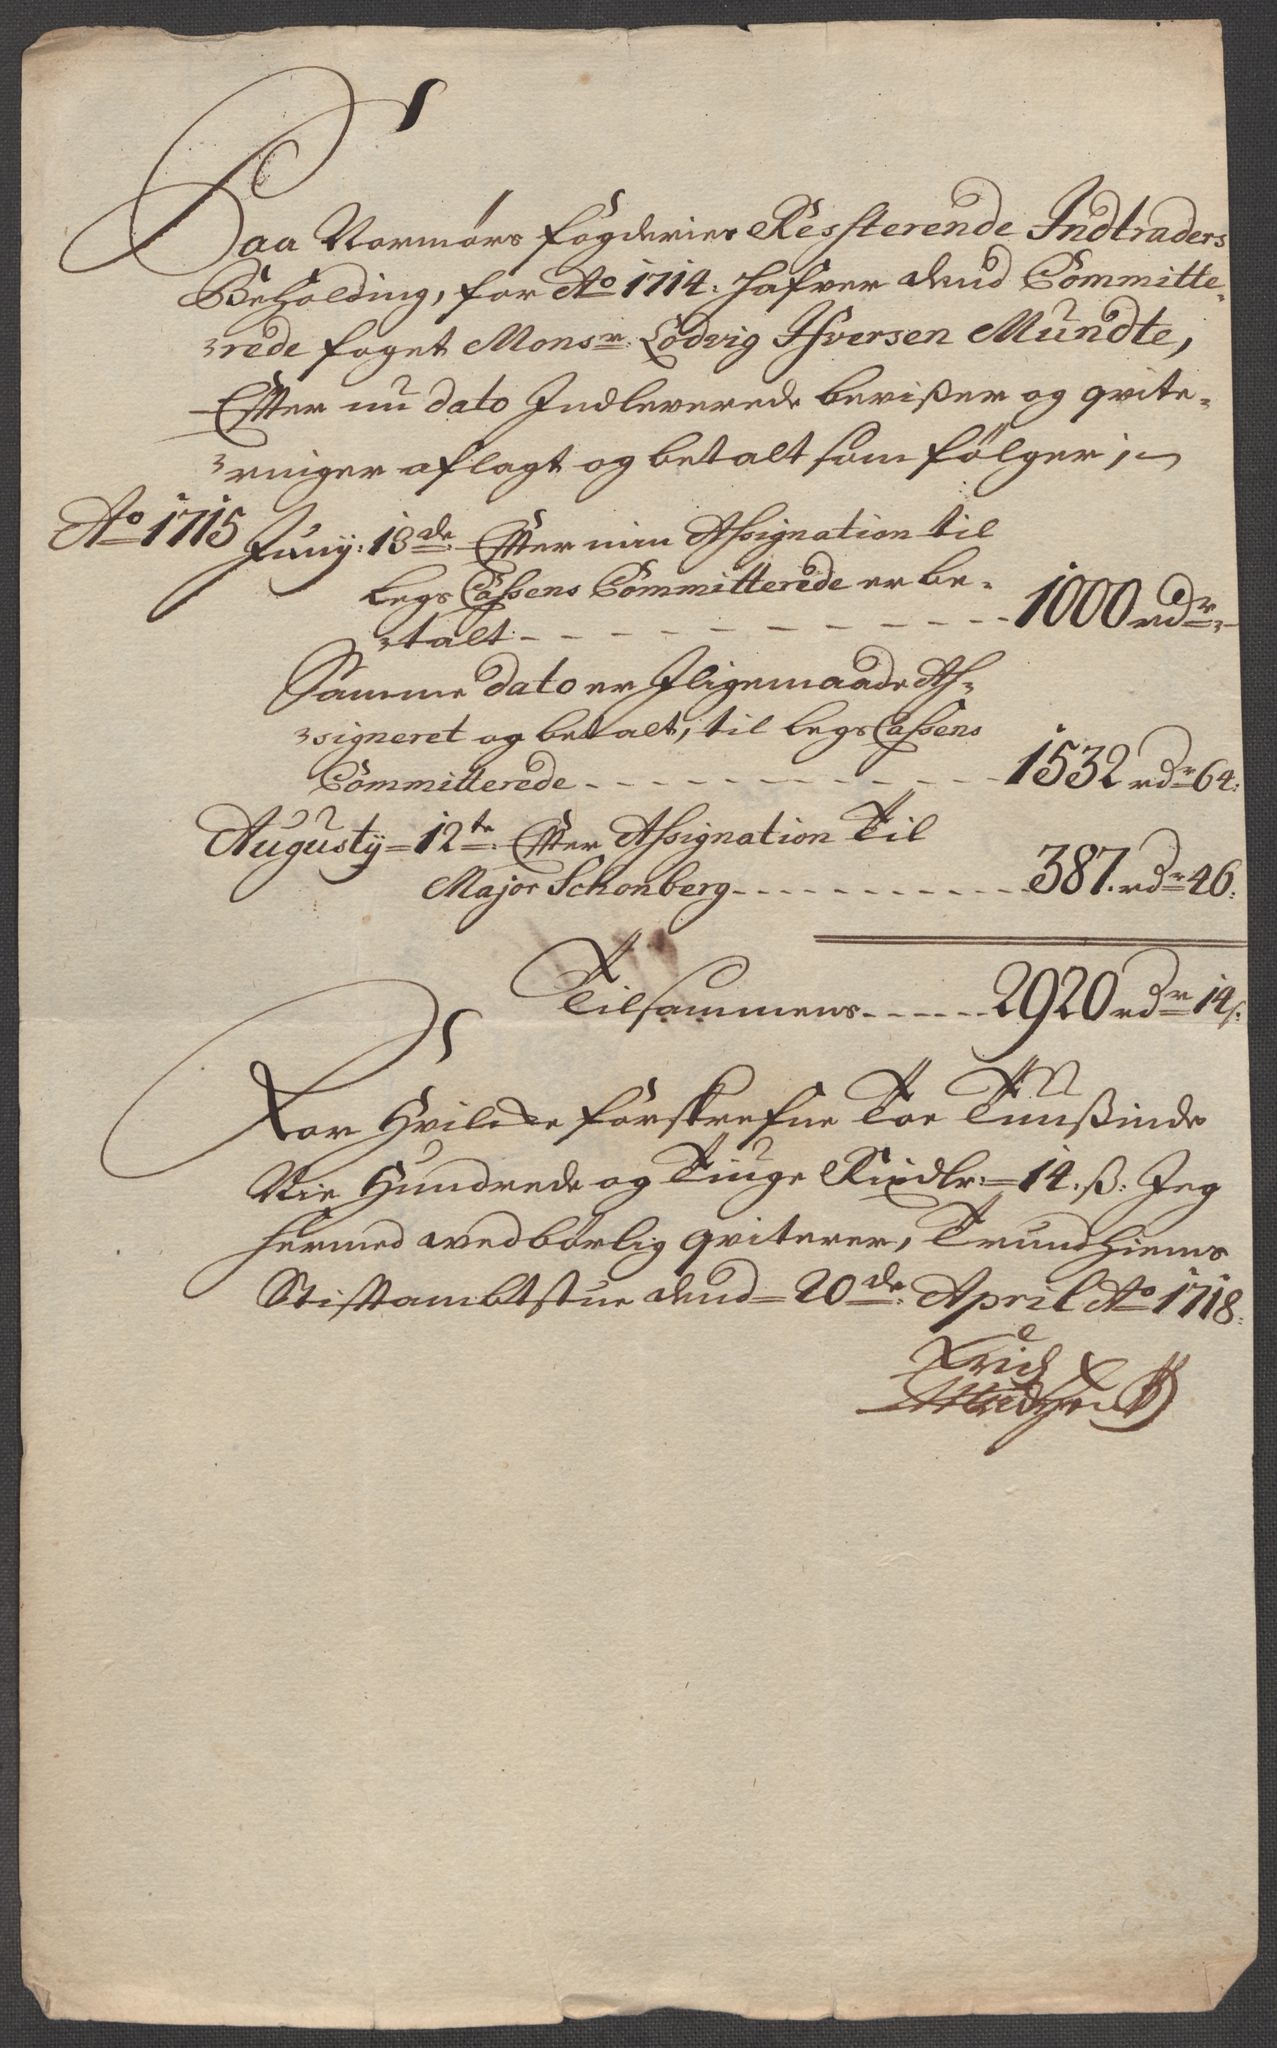 Paa Normørs fogderies Ressterende Indtraders
Beholding, for Ao 1714. Hafver dend Committe-
rede foget Monsr. Lodvig Ifversen Mundte,
Efter nu dato Indleverede beviißer og qvite-
ringer aflagt og betalt som følger;
Ao 1715 Junij: 13de Efter min Assignation til
legs Cassens Committerede er be-
talt - - - 1000 rdr
Samme dato er Iligemaade As-
signeret og betalt, til legs Cassens
Committerede - - - 1532 rdr 64:
Augustij 12te Efter Assignation Til
Major Schonberg - - - 387. rdr 46:
Tilsammens - - - 2920 rdr 14s:
For Hvilcke forskrefne Toe Tuußinde
Nie Hundrede og Tiuge Rixdlr: 14. ß: Jeg
hermed wedbørlig qviterer, Trundhiems
Stiftambtstue dend 20de April Ao 1718:
Erich